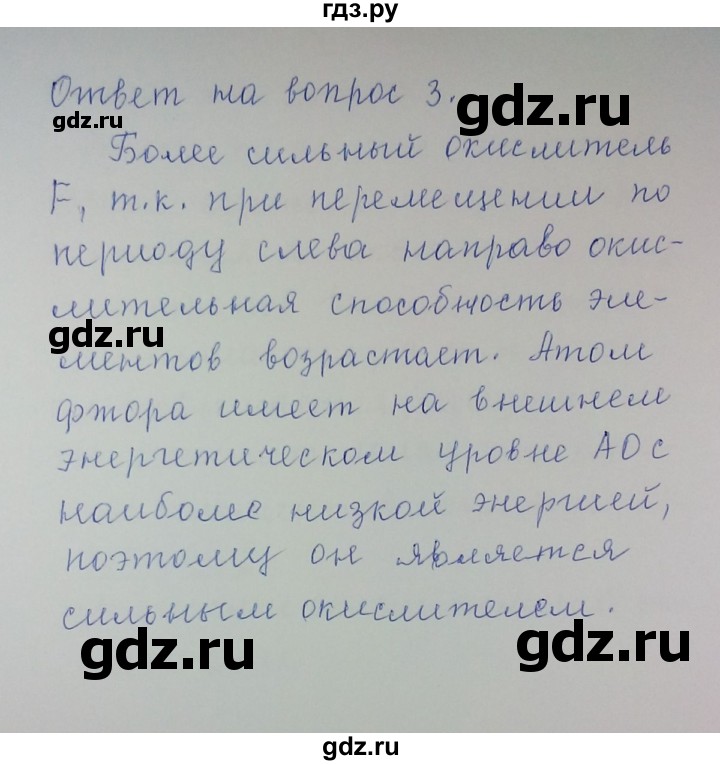 гдз.ру
Ответ на вопрос 3.
gdz.ru
gdz.ru
Более сильный окислитель
F, т.к. при перемещении по
периоду слева направо окис-
лительная способность эле-
gdz.ru
ментов возрастает. Атом
фтора имеет на внешнем
энергетическом уровне АО с
наиболее низкой энергией,
поэтому он является
сильным окислителем.
gdz.ru
gdz.ru
gdz.ru